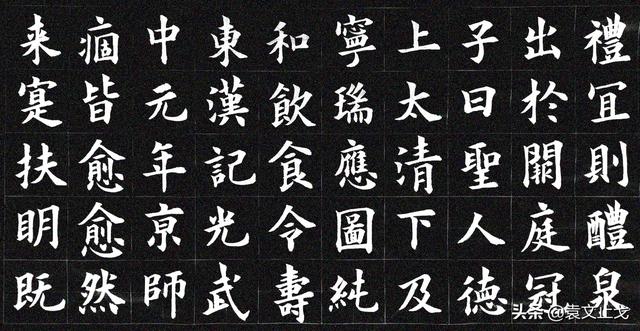 禮冝則醴泉
出於闕庭冠
子曰聖人德
上太清下及
寧瑞應圖純
和飲食令壽
東漢記光武
中元年亰師
痼皆愈愈然
来寔扶明既
头条 @袁文